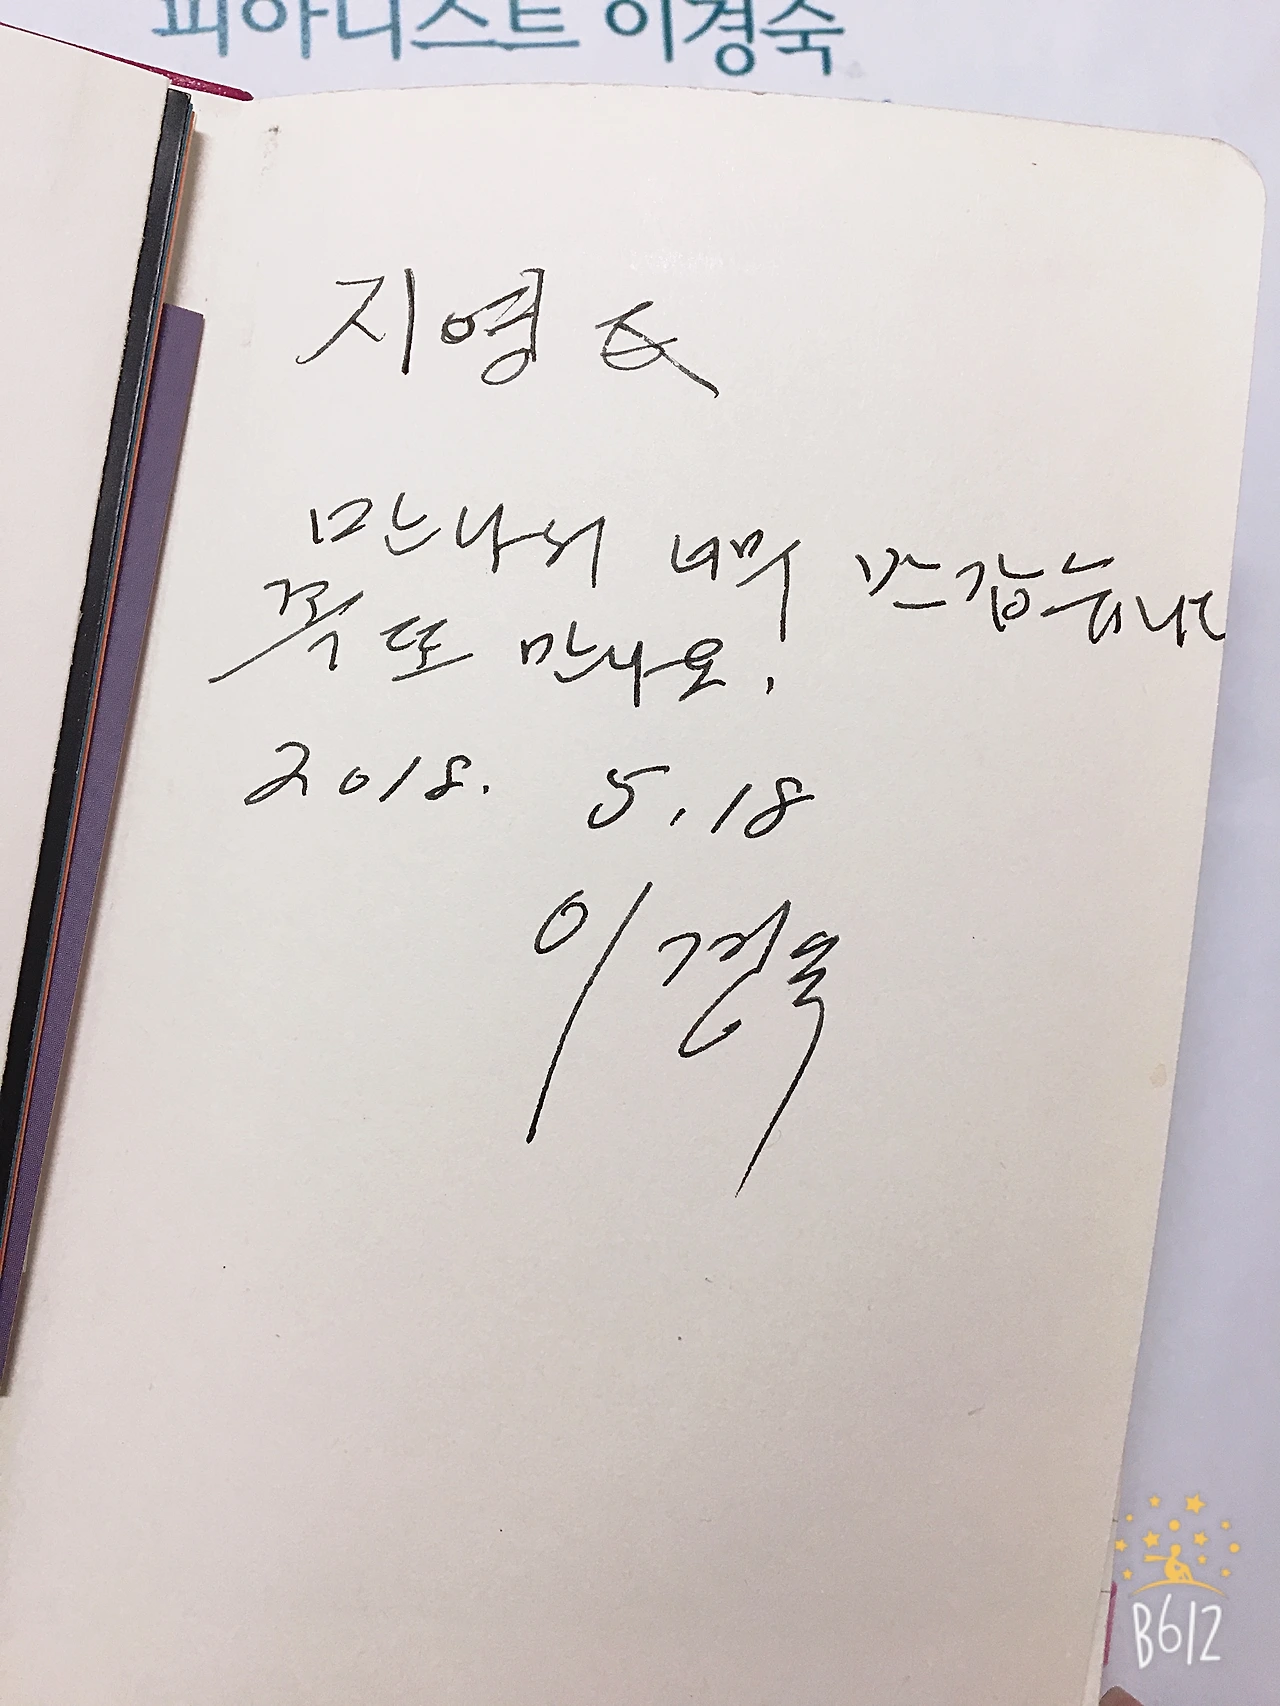 피아니스트 이경숙
지영
만나서 너무 반갑습니다
꼭 또 만나요.
2018. 5.18
이경숙
B612